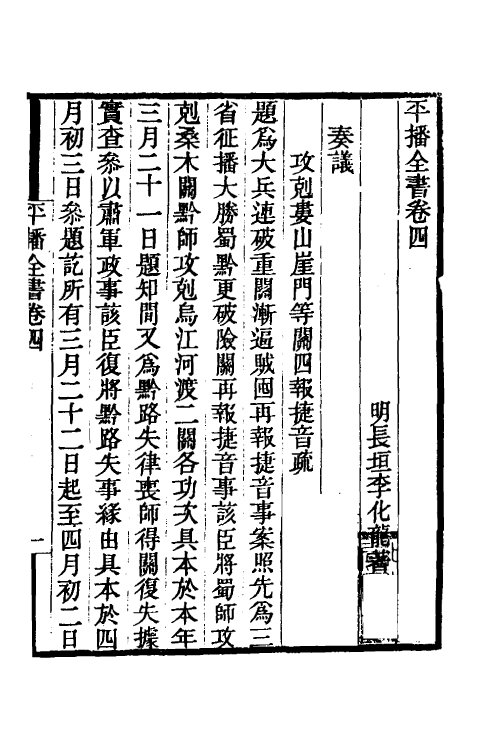 平播全書卷四
明長垣李化龍著
奏議
攻剋婁山崖門等關四報捷音疏
題爲大兵連破重關漸逼賊囤再報捷音事案照先爲三
省征播大勝蜀黔更破險關再報捷音事該臣將蜀師攻
剋桑木關黔師攻剋烏江河渡二關各功次具本於本年
三月二十一日題知間又爲黔路失律喪師得關復失據
實查參以肅軍政事該臣復將黔路失事緣由具本於四
月初三日參題訖所有三月二十二日起至四月初二日
平播全書卷四
一